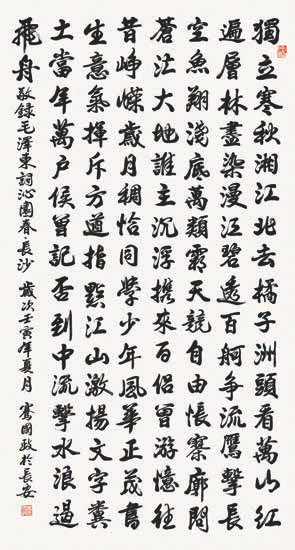 獨立寒秋湘江北去橘子洲頭看萬山紅
遍層林盡染漫江碧透百舸争流鷹擊長
空魚翔淺底萬類霜天競自由悵寥廓問
蒼茫大地誰主沉浮携來百侣曾游憶往
昔崢嶸歲月稠恰同學少年風華正茂書
生意氣揮斥方遒指點江山激揚文字糞
土當年萬户侯曾記否到中流擊水浪遏
飛舟 敬録毛澤東詞沁園春·長沙 歲次壬寅年夏月 騫國政於長安